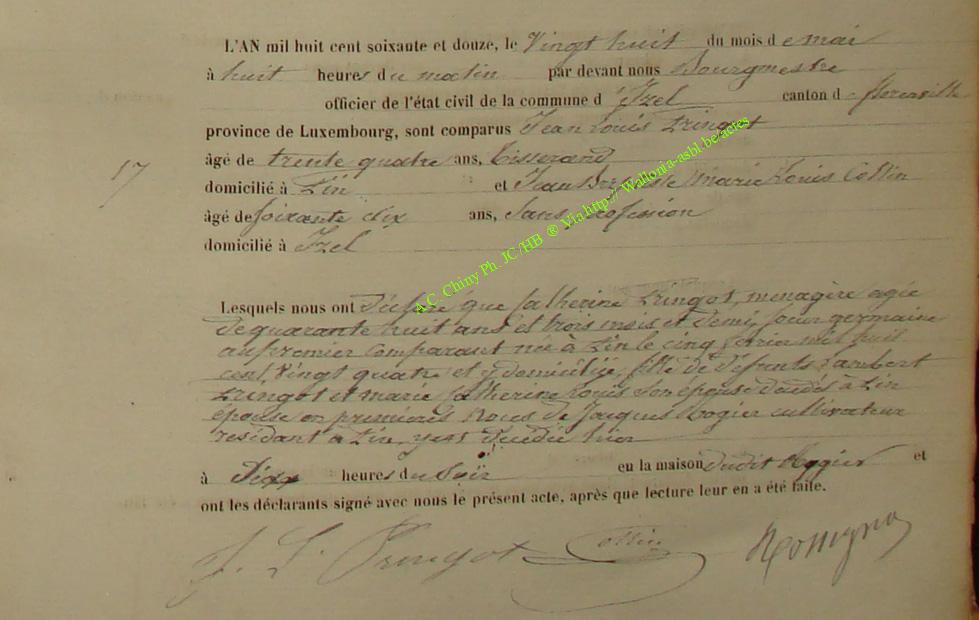 L'AN mil huit cent soixante et douze, le Vingt huit du mois d e mai
à huit heures du matin par devant nous Bourgmestre
officier de l'état civil de la commune d' Izel canton d e florenville
province de Luxembourg, sont comparus Jean Louis Pringot
âgé de trente quatre ans, Tisserand
17
domicilié à Pin et Jean Baptiste Marie Louis Collin
âgé de soixante dix ans, Sans profession
domicilié à Izel
Lesquels nous ont Déclaré que Catherine Pringot, ménagère agée
de quarante huit ans et trois mois et demi, soeur germaine
au premier comparant née à Pin le cinq février mil huit
cent Vingt quatre et y domiciliée, fille de défunts Lambert
Pringot et marie Catherine Louis son épouse décédés à Pin
épouse en premières Noces de Jacques Rogier cultivateur
résidant à Pin, y est décédée hier
à Dix heures du Soir en la maison dudit Rogier et
ont les déclarants signé avec nous le présent acte, après que lecture leur en a été faite.
J. L. Pringot Collin
A.C. Chiny Ph. JC /HB ® Via http:// Wallonia-asbl.be/actes